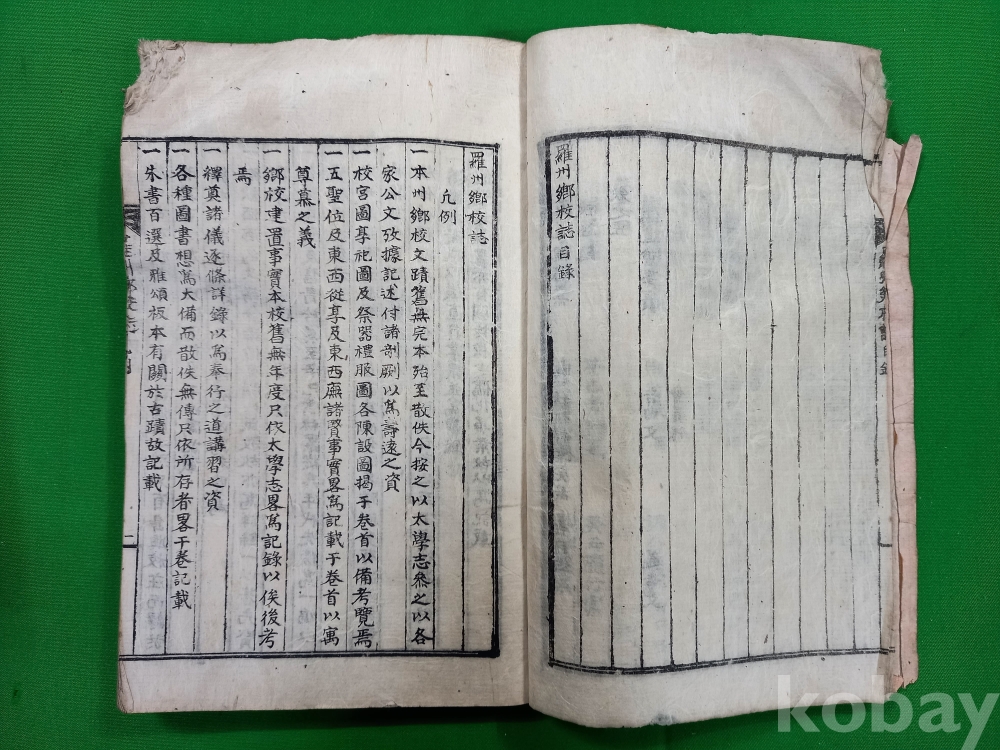 羅州鄉校誌目錄
羅州鄉校誌
凡例
一本州鄉校文蹟舊無完本殆至散佚今按之以太學志參之以各
家公文攷據記述付諸剞劂以爲壽遠之資
一校宮圖享祀圖及祭器禮服圖各陳設圖揭于卷首以備考覽焉
一五聖位及東西從享及東西廡諸賢事實畧爲記載于卷首以寓
尊慕之義
一鄉校建置事實本校舊無年度只依太學志畧爲記錄以俟後考
焉
一釋奠諸儀逐條詳錄以爲奉行之道講習之資
一各種圖書想爲大備而散佚無傳只依所存者畧于卷記載
一朱書百選及雅頌板本有關於古蹟故記載
kobay